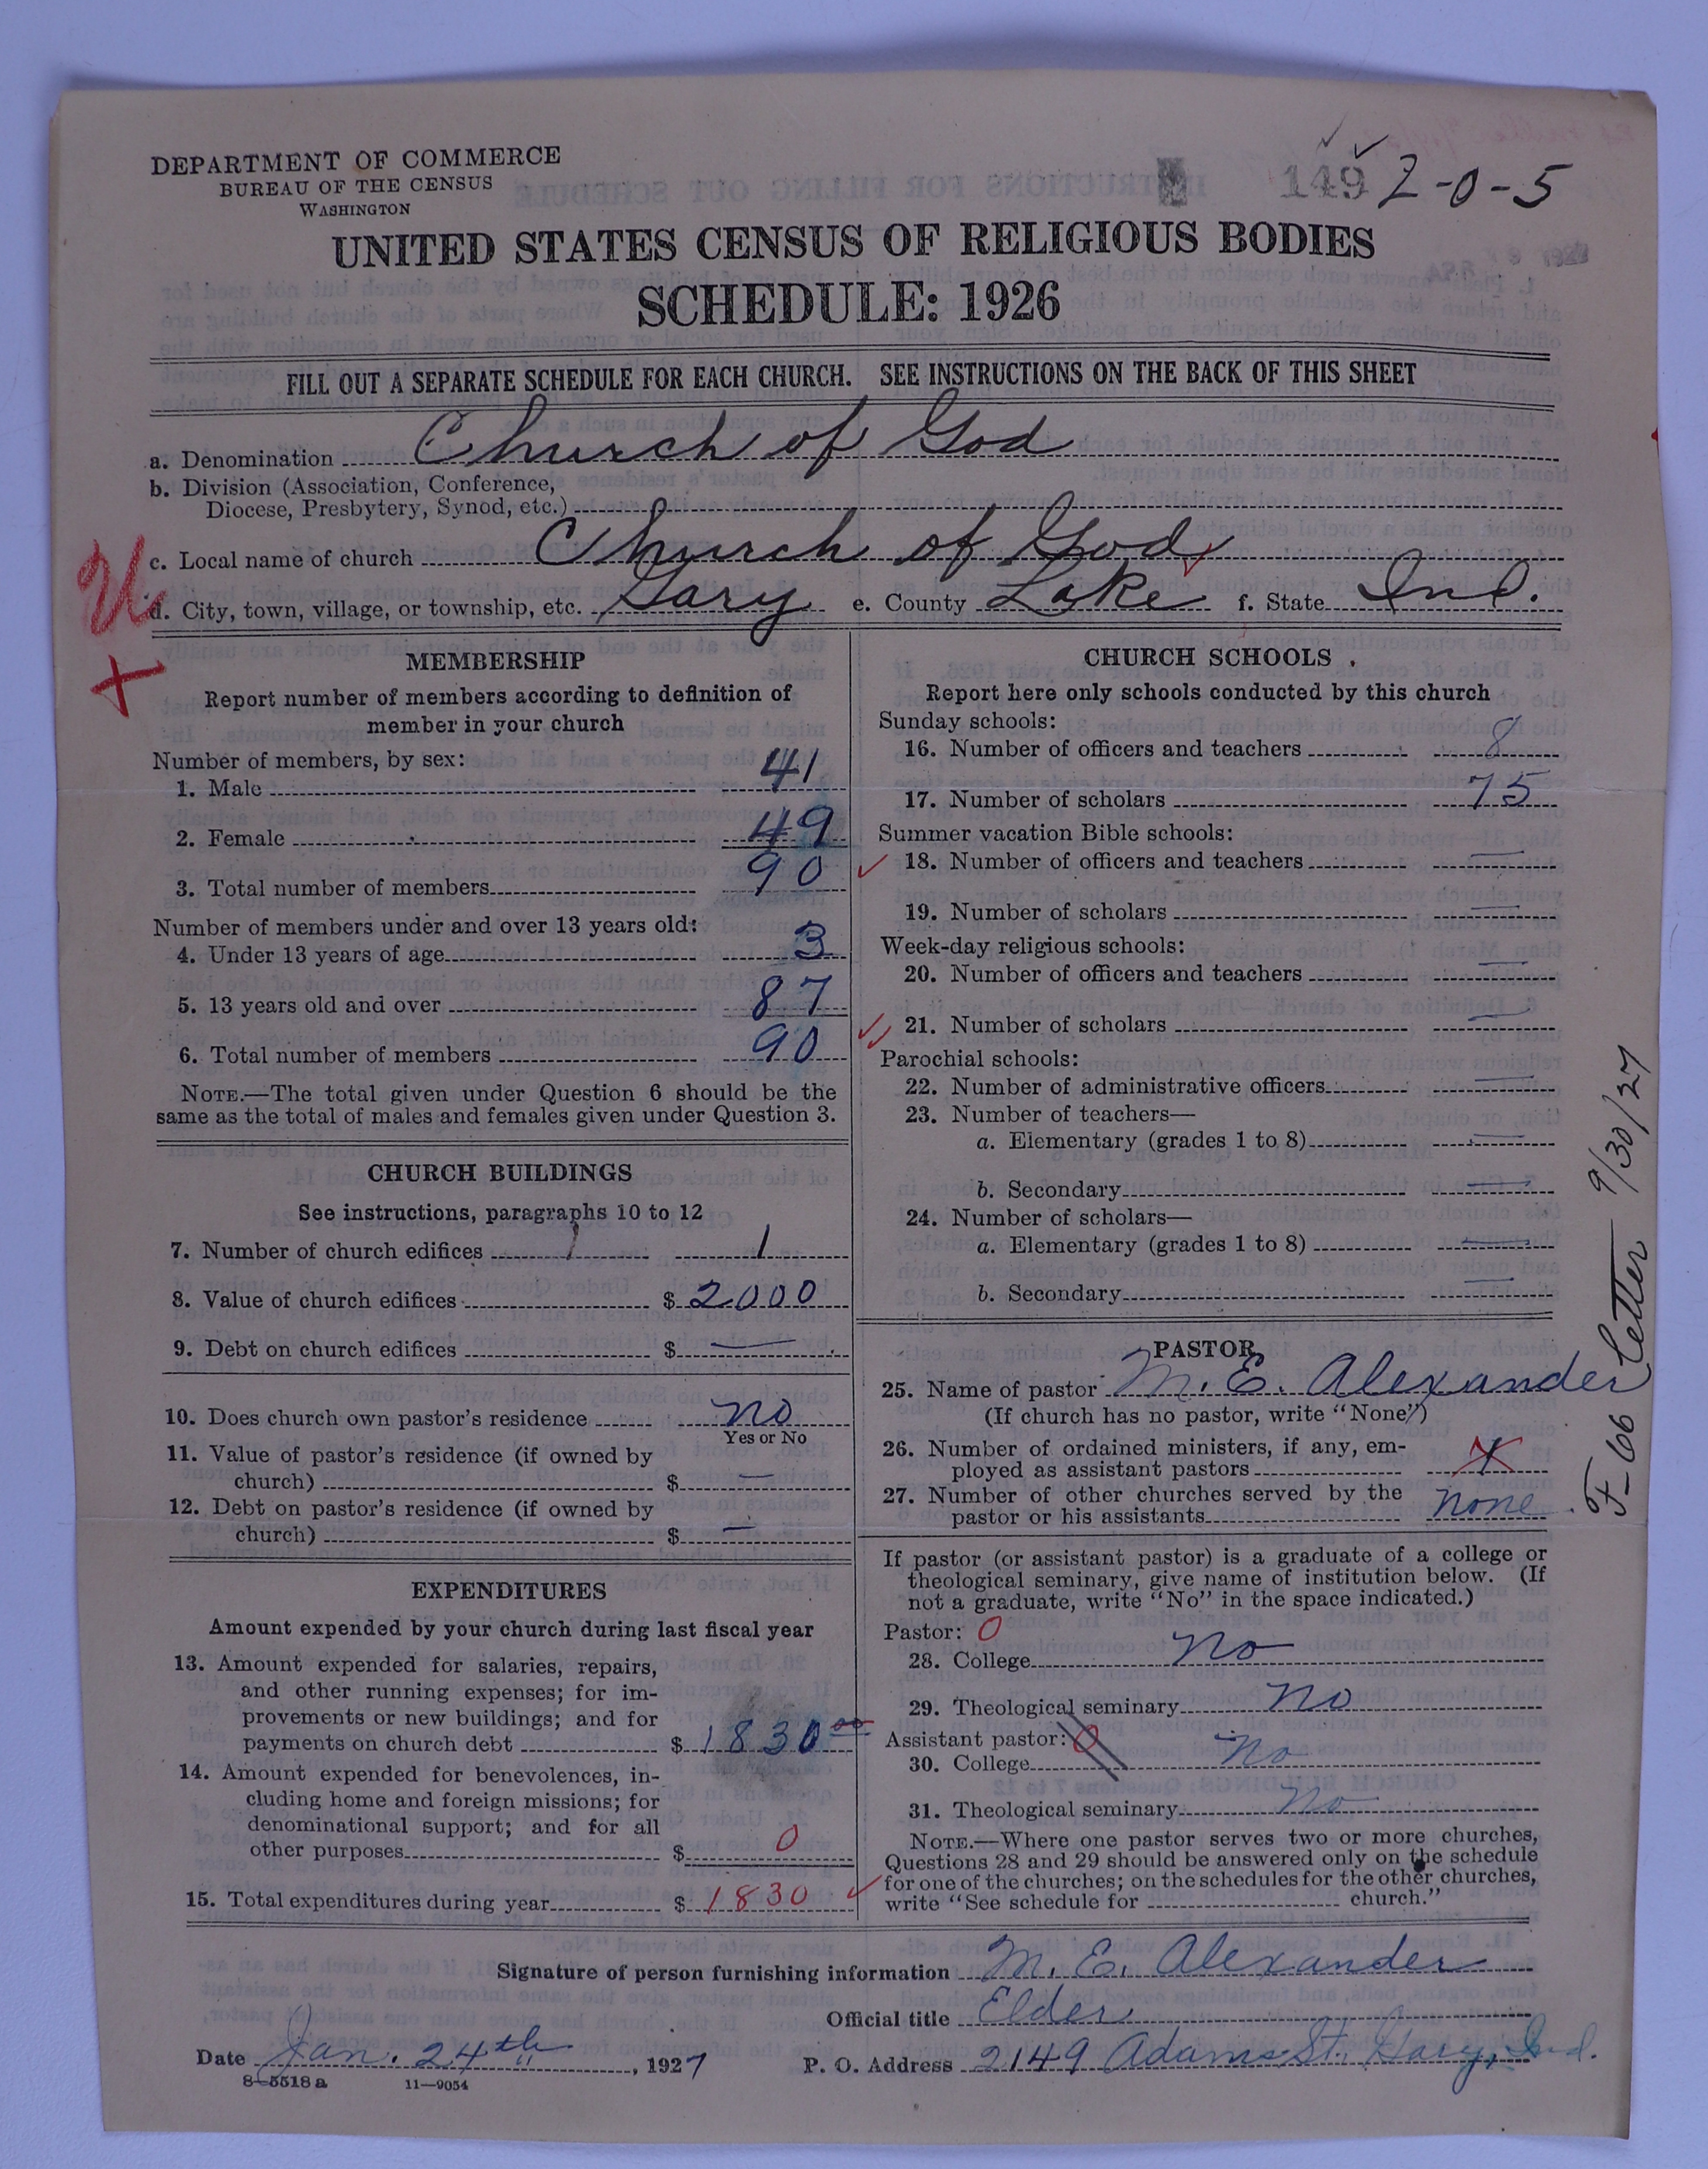 149 2-0-5
DEPARTMENT OF COMMERCE
BUREAU OF THE CENSUS
WASHINGTON
UNITED STATES CENSUS OF RELIGIOUS BODIES
SCHEDULE: 1926
FILL OUT A SEPARATE SCHEDULE FOR EACH CHURCH. SEE INSTRUCTIONS ON THE BACK OF THIS SHEET
a. Denomination Church of God
b. Division (Association, Conference,
Diocese, Presbytery, Synod, etc.)
c. Local name of church Church of God
d. City, town, village, or township, etc. Gary e. County Lake f. State Ind.
MEMBERSHIP
Report number of members according to definition of
member in your church
Number of members, by sex:
1. Male 41
2. Female 49
3. Total number of members 90
Number of members under and over 13 years old:
4. Under 13 years of age 3
5. 13 years old and over 87
6. Total number of members 90
NOTE.—The total given under Question 6 should be the
same as the total of males and females given under Question 3.
CHURCH BUILDINGS
See instructions, paragraphs 10 to 12
7. Number of church edifices 1 1
8. Value of church edifices $ 2000
9. Debt on church edifices $ —
10. Does church own pastor's residence no
Yes or No
11. Value of pastor's residence (if owned by
church) $ —
12. Debt on pastor's residence (if owned by
church) $ —
EXPENDITURES
Amount expended by your church during last fiscal year
13. Amount expended for salaries, repairs,
and other running expenses; for im-
provements or new buildings; and for
payments on church debt $ 1830 00
14. Amount expended for benevolences, in-
cluding home and foreign missions; for
denominational support; and for all
other purposes $ 0
15. Total expenditures during year $ 1830
CHURCH SCHOOLS
Report here only schools conducted by this church
Sunday schools:
16. Number of officers and teachers 8
17. Number of scholars 75
Summer vacation Bible schools:
18. Number of officers and teachers —
19. Number of scholars —
Week-day religious schools:
20. Number of officers and teachers —
21. Number of scholars —
Parochial schools:
22. Number of administrative officers —
23. Number of teachers—
a. Elementary (grades 1 to 8) —
b. Secondary —
24. Number of scholars—
a. Elementary (grades 1 to 8) —
b. Secondary —
PASTOR
25. Name of pastor M. E. Alexander
(If church has no pastor, write "None")
26. Number of ordained ministers, if any, em-
ployed as assistant pastors
27. Number of other churches served by the
pastor or his assistants none
If pastor (or assistant pastor) is a graduate of a college or
theological seminary, give name of institution below. (If
not a graduate, write "No" in the space indicated.)
Pastor: 0
28. College no
29. Theological seminary no
Assistant pastor: 0
30. College no
31. Theological seminary no
NOTE.—Where one pastor serves two or more churches,
Questions 28 and 29 should be answered only on the schedule
for one of the churches; on the schedules for the other churches,
write "See schedule for church."
F-66 Letter 9/30/27
Signature of person furnishing information M. E. Alexander
Official title Elder
Date Jan. 24th, 1927 P. O. Address 2149 Adams St. Gary, Ind.
8-5518a 11—9054